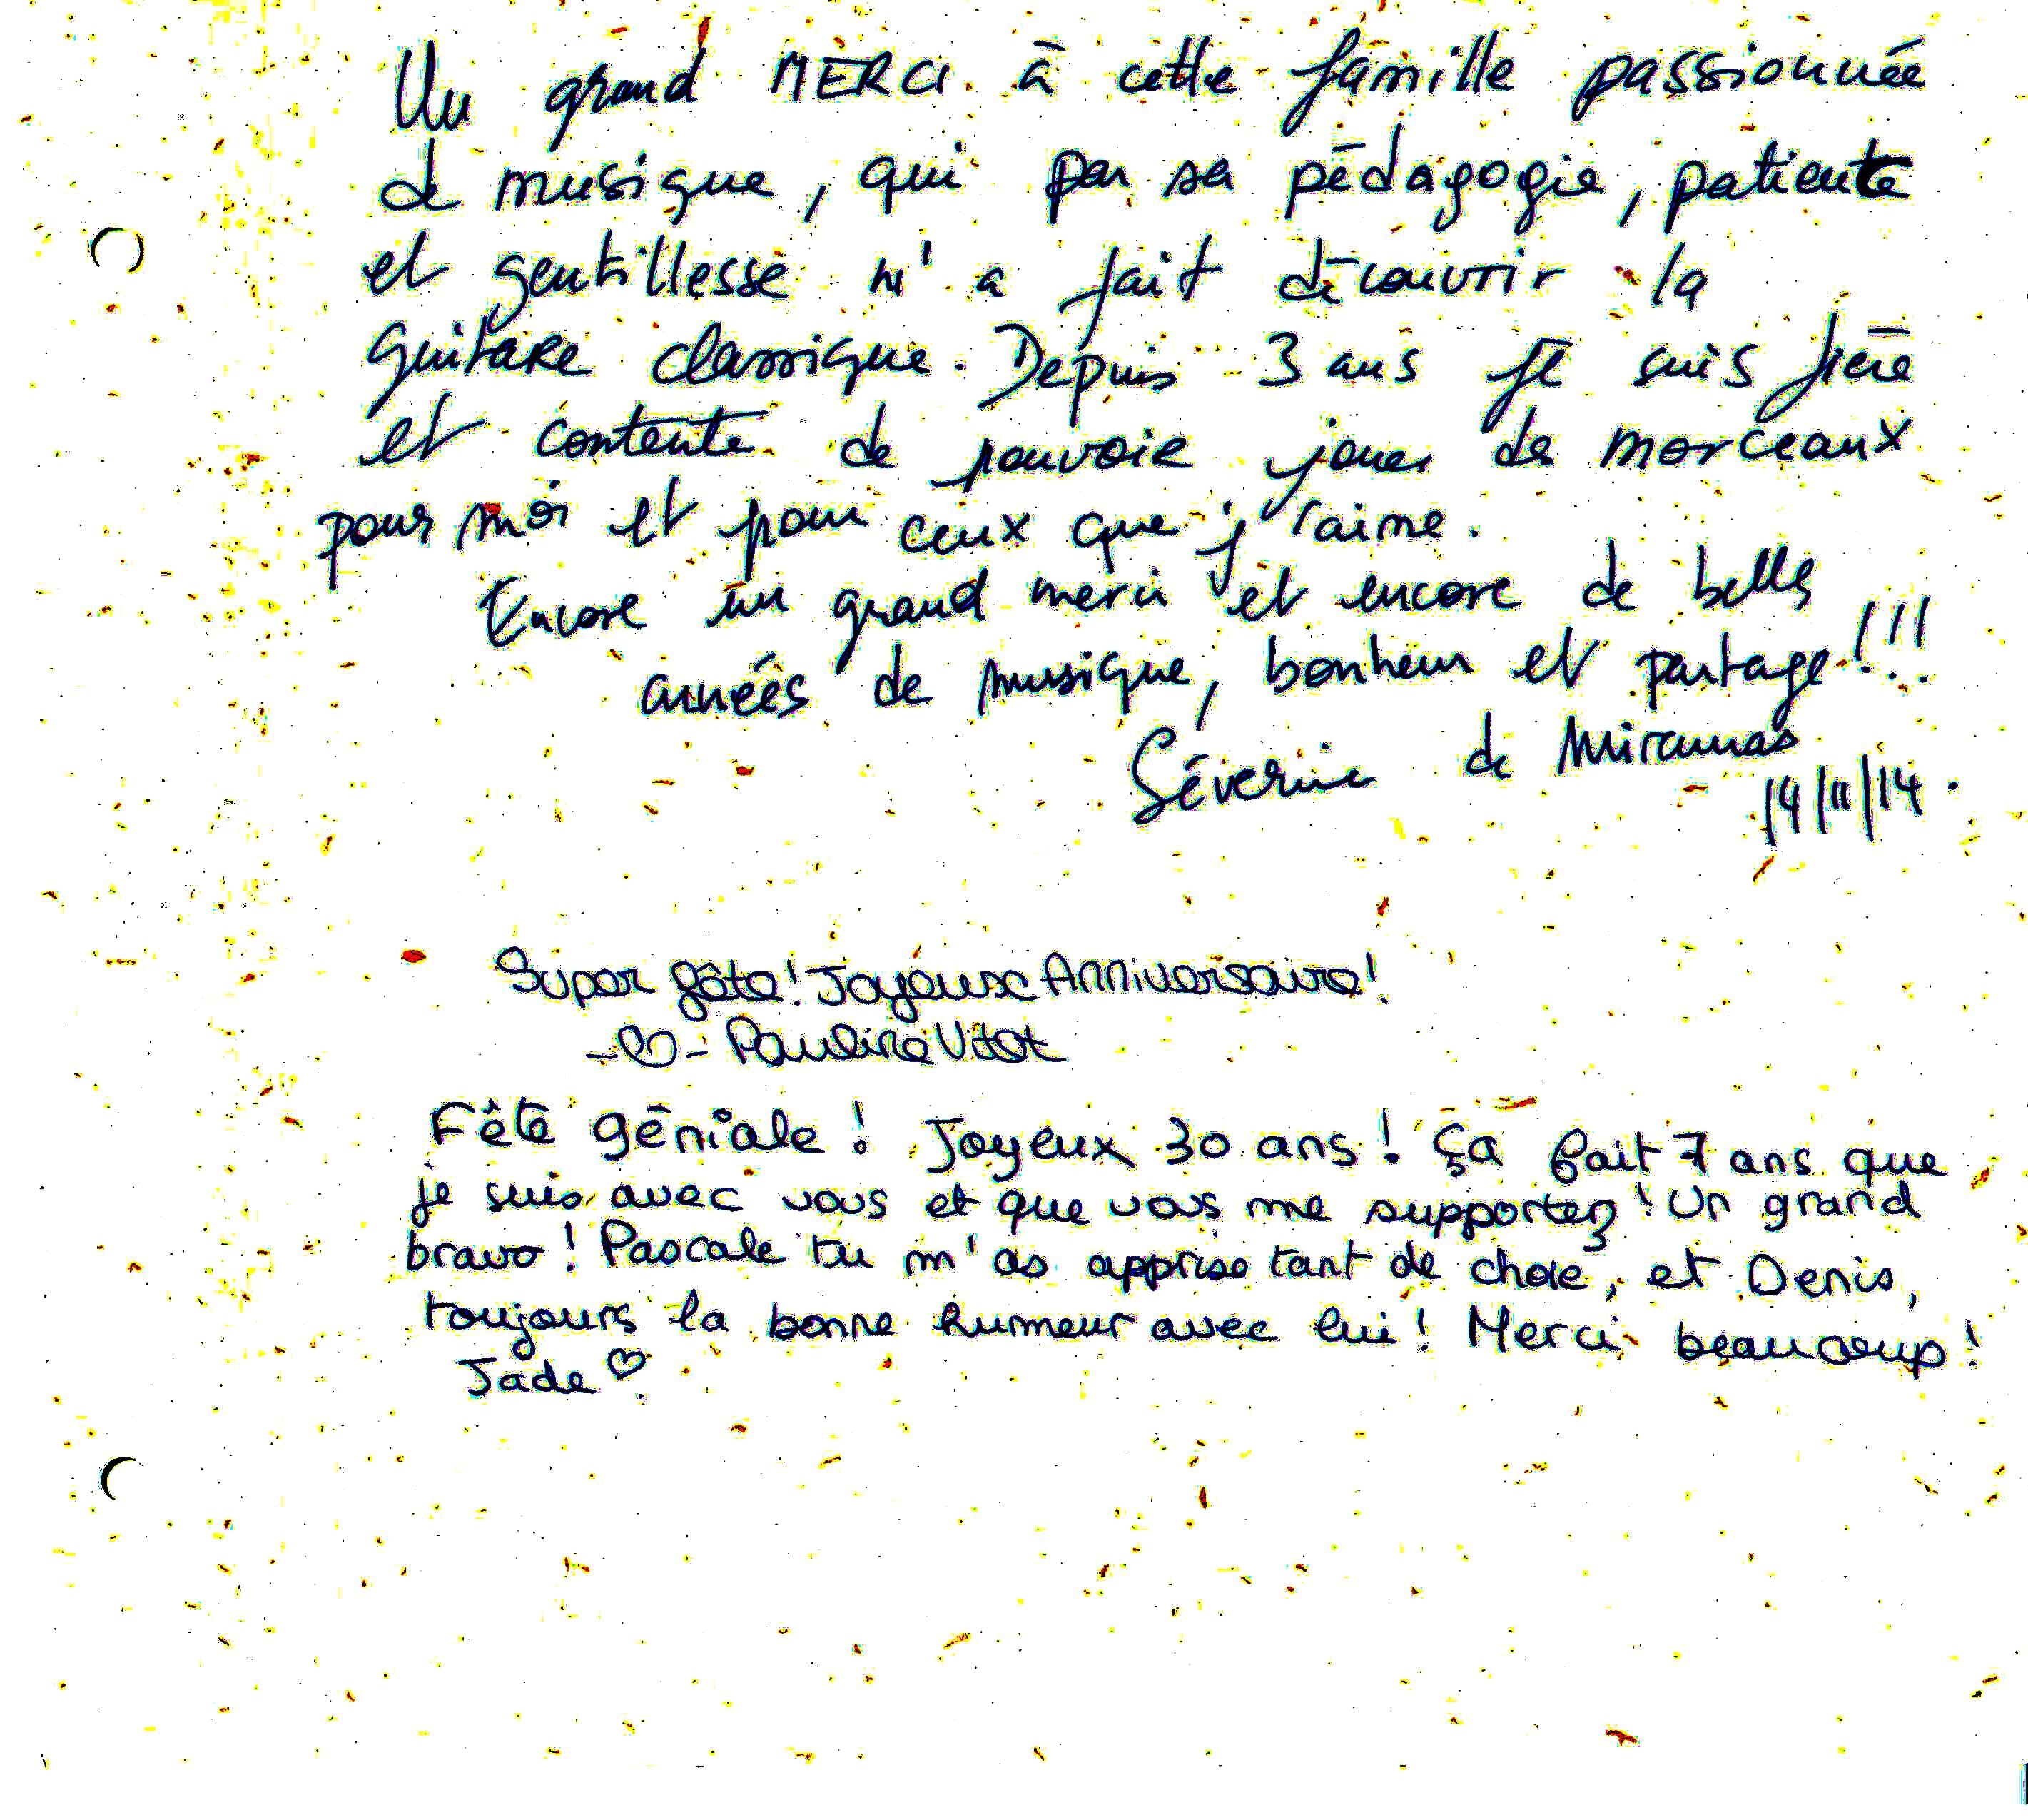 Un grand MERCI à cette famille passionnée
de musique, qui par sa pédagogie, patiente
et gentillesse m'a fait découvrir la
guitare classique. Depuis 3 ans je suis fière
et contente de pouvoir jouer des morceaux
pour moi et pour ceux que j'aime.
Encore un grand merci et encore de belles
années de musique, bonheur et partage !!!
Séverine de Miramas
14/11/14.
Super fête! Joyeux Anniversaire!
-♡- Pauline Vitot
Fête géniale ! Joyeux 30 ans ! ça fait 7 ans que
je suis avec vous et que vous me supportez ! Un grand
bravo ! Pascale tu m'as appriso tant de chose, et Denis,
toujours la bonne humeur avec lui ! Merci beaucoup !
Jade ♡